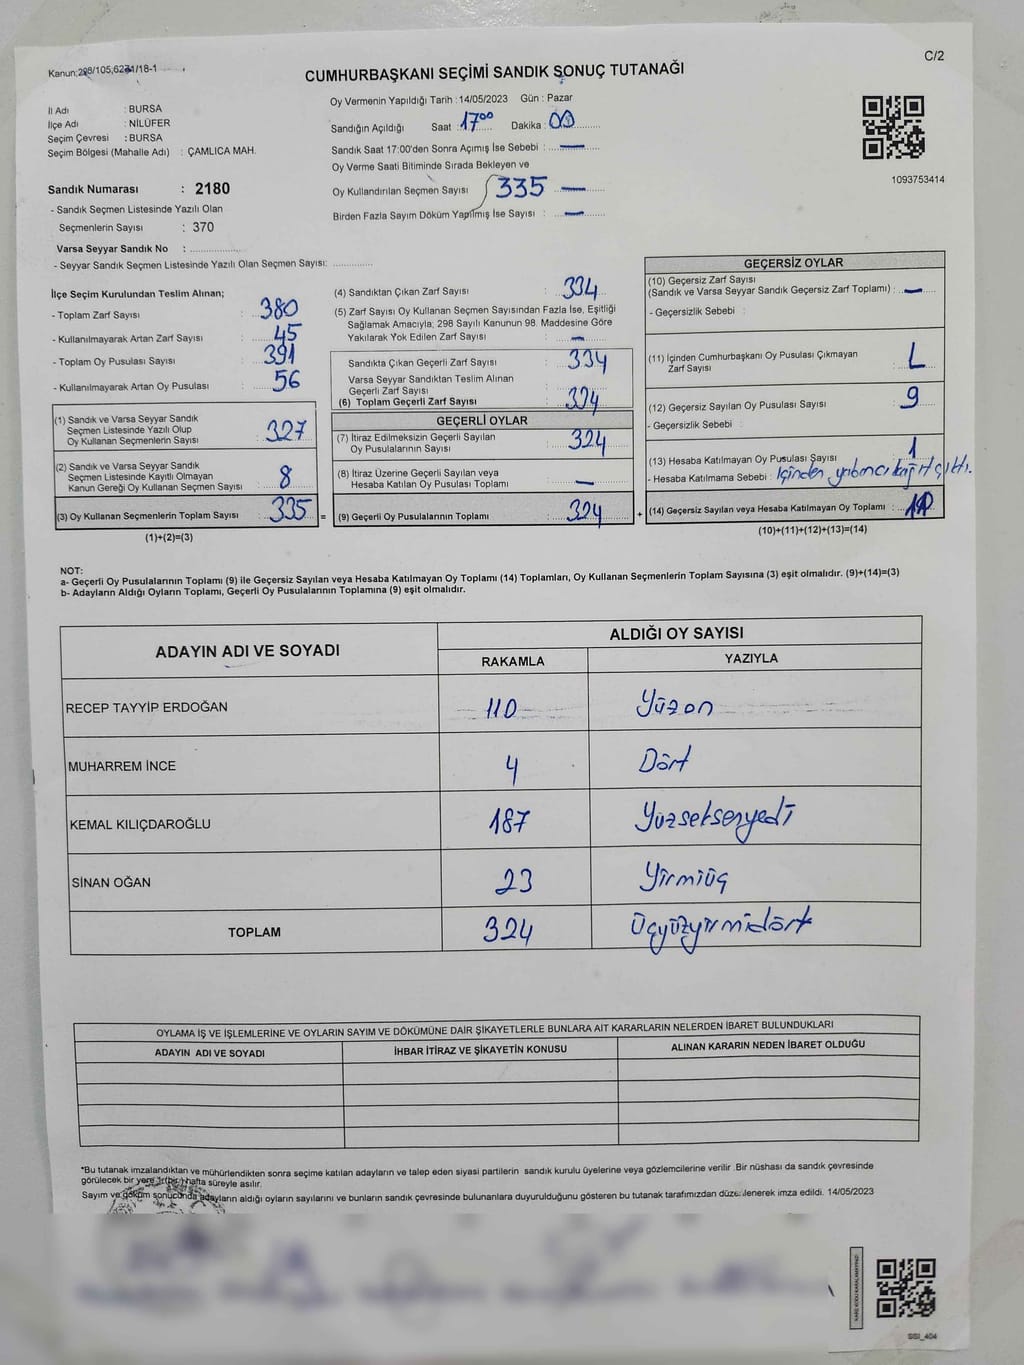 Kanun;298/105;6271/18-1
C/2
CUMHURBAŞKANI SEÇİMİ SANDIK SONUÇ TUTANAĞI
İl Adı : BURSA
İlçe Adı : NİLÜFER
Seçim Çevresi : BURSA
Seçim Bölgesi (Mahalle Adı) : ÇAMLICA MAH.
Sandık Numarası : 2180
- Sandık Seçmen Listesinde Yazılı Olan
Seçmenlerin Sayısı : 370
Varsa Seyyar Sandık No : ..............
- Seyyar Sandık Seçmen Listesinde Yazılı Olan Seçmen Sayısı: ............
Oy Vermenin Yapıldığı Tarih : 14/05/2023 Gün : Pazar
Sandığın Açıldığı Saat : 17⁰⁰ Dakika : 00
Sandık Saat 17:00'den Sonra Açımış İse Sebebi : —
Oy Verme Saati Bitiminde Sırada Bekleyen ve
Oy Kullandırılan Seçmen Sayısı 335 —
Birden Fazla Sayım Döküm Yapılmış İse Sayısı : —
1093753414
İlçe Seçim Kurulundan Teslim Alınan;
- Toplam Zarf Sayısı : 380
- Kullanılmayarak Artan Zarf Sayısı : 45
- Toplam Oy Pusulası Sayısı : 391
- Kullanılmayarak Artan Oy Pusulası : 56
(1) Sandık ve Varsa Seyyar Sandık
Seçmen Listesinde Yazılı Olup
Oy Kullanan Seçmenlerin Sayısı : 327
(2) Sandık ve Varsa Seyyar Sandık
Seçmen Listesinde Kayıtlı Olmayan
Kanun Gereği Oy Kullanan Seçmen Sayısı : 8
(3) Oy Kullanan Seçmenlerin Toplam Sayısı : 335 =
(1)+(2)=(3)
(4) Sandıktan Çıkan Zarf Sayısı : 334
(5) Zarf Sayısı Oy Kullanan Seçmen Sayısından Fazla İse, Eşitliği
Sağlamak Amacıyla; 298 Sayılı Kanunun 98. Maddesine Göre
Yakılarak Yok Edilen Zarf Sayısı : —
Sandıkta Çıkan Geçerli Zarf Sayısı : 334
Varsa Seyyar Sandıktan Teslim Alınan
Geçerli Zarf Sayısı :
(6) Toplam Geçerli Zarf Sayısı : 324
GEÇERLİ OYLAR
(7) İtiraz Edilmeksizin Geçerli Sayılan
Oy Pusulalarının Sayısı : 324
(8) İtiraz Üzerine Geçerli Sayılan veya
Hesaba Katılan Oy Pusulası Toplamı : —
(9) Geçerli Oy Pusulalarının Toplamı : 324 +
GEÇERSİZ OYLAR
(10) Geçersiz Zarf Sayısı
(Sandık ve Varsa Seyyar Sandık Geçersiz Zarf Toplamı) : —
- Geçersizlik Sebebi :
(11) İçinden Cumhurbaşkanı Oy Pusulası Çıkmayan
Zarf Sayısı :
(12) Geçersiz Sayılan Oy Pusulası Sayısı : 9
- Geçersizlik Sebebi :
(13) Hesaba Katılmayan Oy Pusulası Sayısı : 1
- Hesaba Katılmama Sebebi : İçinden yabancı kağıt çıktı.
(14) Geçersiz Sayılan veya Hesaba Katılmayan Oy Toplamı :
(10)+(11)+(12)+(13)=(14)
NOT:
a- Geçerli Oy Pusulalarının Toplamı (9) ile Geçersiz Sayılan veya Hesaba Katılmayan Oy Toplamı (14) Toplamları, Oy Kullanan Seçmenlerin Toplam Sayısına (3) eşit olmalıdır. (9)+(14)=(3)
b- Adayların Aldığı Oyların Toplamı, Geçerli Oy Pusulalarının Toplamına (9) eşit olmalıdır.
ADAYIN ADI VE SOYADI ALDIĞI OY SAYISI
RAKAMLA YAZIYLA
RECEP TAYYİP ERDOĞAN 110 Yüzon
MUHARREM İNCE 4 Dört
KEMAL KILIÇDAROĞLU 187 Yüzseksenyedi
SİNAN OĞAN 23 Yirmiüç
TOPLAM 324 Üçyüzyirmidört
OYLAMA İŞ VE İŞLEMLERİNE VE OYLARIN SAYIM VE DÖKÜMÜNE DAİR ŞİKAYETLERLE BUNLARA AİT KARARLARIN NELERDEN İBARET BULUNDUKLARI
ADAYIN ADI VE SOYADI İHBAR İTİRAZ VE ŞİKAYETİN KONUSU ALINAN KARARIN NEDEN İBARET OLDUĞU
*Bu tutanak imzalandıktan ve mühürlendikten sonra seçime katılan adayların ve talep eden siyasi partilerin sandık kurulu üyelerine veya gözlemcilerine verilir .Bir nüshası da sandık çevresinde
görülecek bir yere 1(bir) hafta süreyle asılır.
Sayım ve döküm sonucunda adayların aldığı oyların sayılarını ve bunların sandık çevresinde bulunanlara duyurulduğunu gösteren bu tutanak tarafımızdan düzenlenerek imza edildi. 14/05/2023
SSI_404